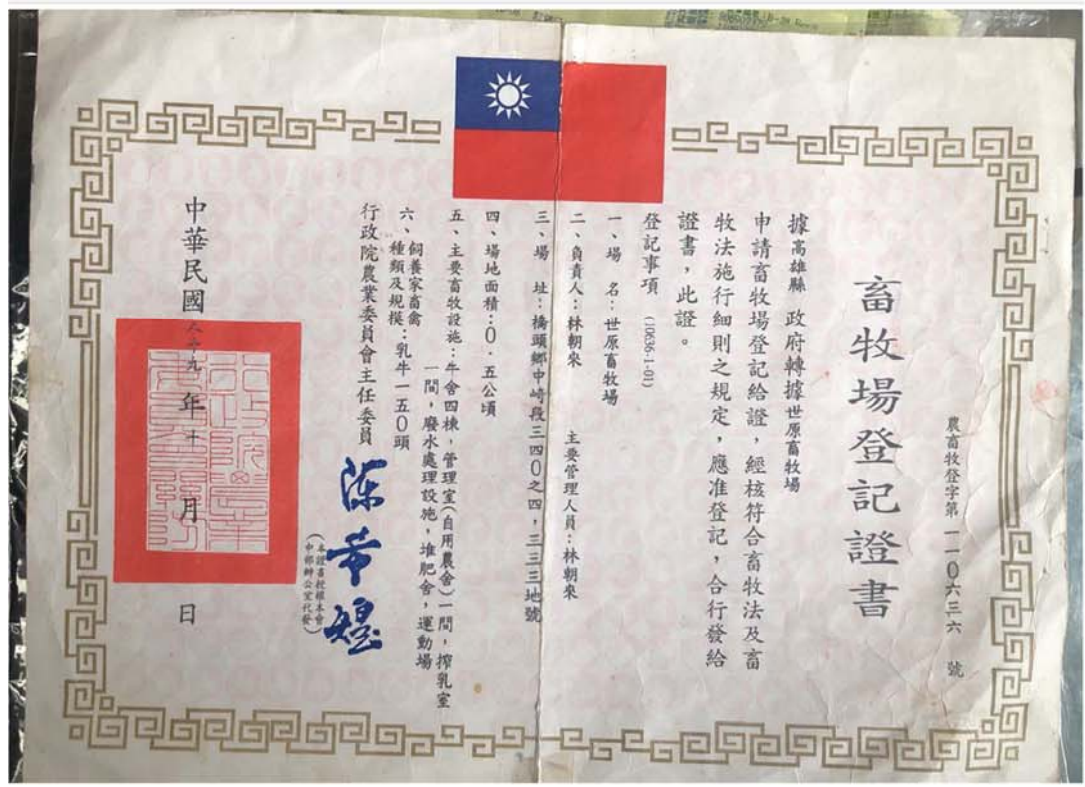 農畜牧登字第一一0六三六號
畜牧場登記證書
據高雄縣 政府轉據世原畜牧場
申請畜牧場登記給證，經核符合畜牧法及畜
牧法施行細則之規定，應准登記，合行發給
證書，此證。
登記事項 (10636-1-01)
一、場 名：世原畜牧場
二、負責人：林朝來 主要管理人員：林朝來
三、場 址：橋頭鄉中崎段三四0之四，三三三地號
四、場地面積：0．五公頃
五、主要畜牧設施：牛舍四棟，管理室(自用農舍)一間，搾乳室
一間，廢水處理設施，堆肥舍，運動場
六、飼養家畜禽
種類及規模：乳牛一五0頭
行政院農業委員會主任委員 陳希煌
(本證書授權本會
中部辦公室代發)
中華民國 九年十月 日